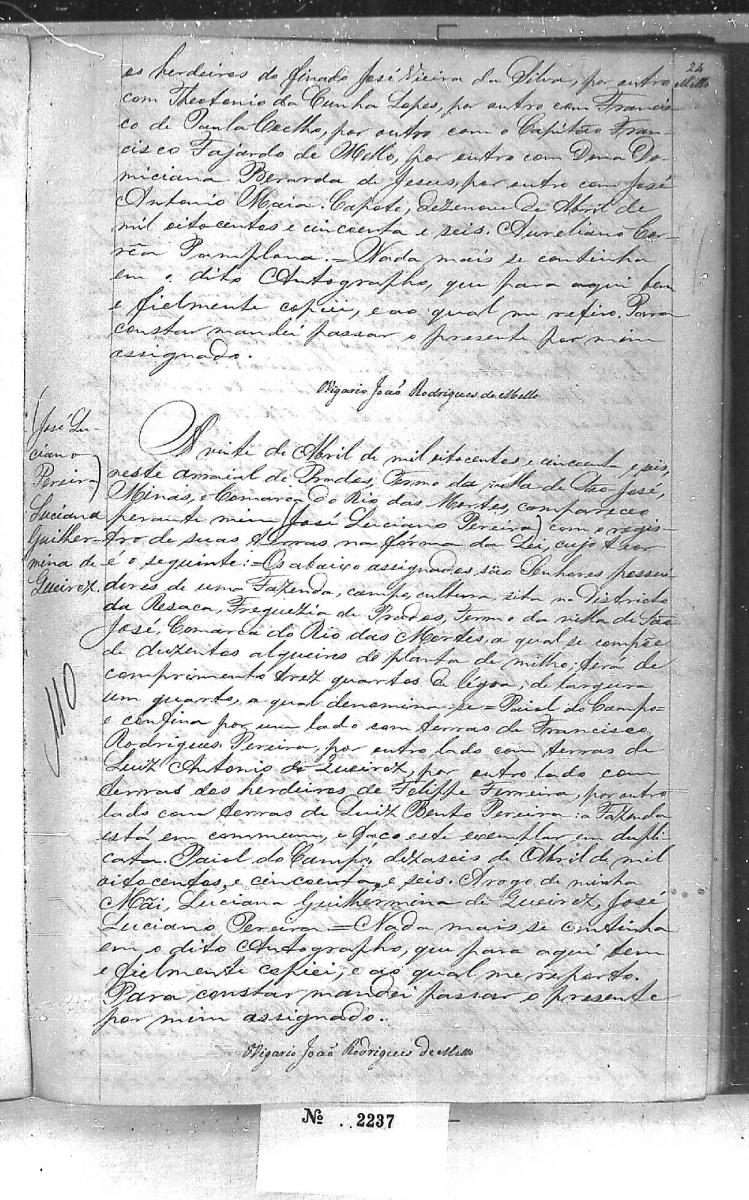 24
Mello
os herdeiros do finado José Vieira da Silva, por outro
com Theotonio da Cunha Lopes, por outro com Francis-
co de Paula Coelho, por outro com o Capitão Fran-
cisco Fajardo de Mello, por outro com Dona Do-
miciana Bernarda de Jesus, por outro com José
Antonio Maia Capote, dezenove de Abril de
mil oitocentos e cincoenta e seis. Aureliano Cor-
rêa Pamplona. = Nada mais se continha
em o dito Autographo, que para aqui bem
e fielmente copiei, e ao qual me refiro. Para
constar mandei passar o presente por mim
assignado.
Vigario João Rodrigues de Mello
(José Lu-
ciano
Pereira)
Luciana
Guilher-
mina de
Queirez.
110
A vinte de Abril de mil oitocentos e cincoenta e seis,
neste arraial de Prados, Termo da villa de São José,
Minas, e Comarca do Rio das Mortes, compareceo
perante mim (José Luciano Pereira) com o regis-
tro de suas terras na fórma da Lei, cujo theor
é o seguinte: = Os abaixo assignados, são Senhores possui-
dores de uma Fazenda, campo, cultura, sita no Districto
da Resaca, Freguezia de Prados, Termo da villa de São
José, Comarca do Rio das Mortes, a qual se compõe
de duzentos alqueires de planta de milho; terá de
comprimento trez quartos de legoa, de largura
um quarto, a qual denomina-se = Paiol do Campo =
e confina por um lado com terras de Francisco
Rodrigues Pereira, por outro lado com terras de
Luiz Antonio de Queirez, por outro lado com
terras dos herdeiros de Felippe Ferreira, por outro
lado com terras de Luiz Bento Pereira: a Fazenda
está em commum, e faço este exemplar em dupli-
cata. Paiol do Campo, dezaseis de Abril de mil
oitocentos, e cincoenta, e seis. A rogo de minha
Mãi, Luciana Guilhermina de Queirez, José
Luciano Pereira = Nada mais se continha
em o dito Autographo, que para aqui bem
e fielmente copiei, e ao qual me reporto.
Para constar mandei passar o presente
por mim assignado.
Vigario João Rodrigues de Mello
Nº 2237